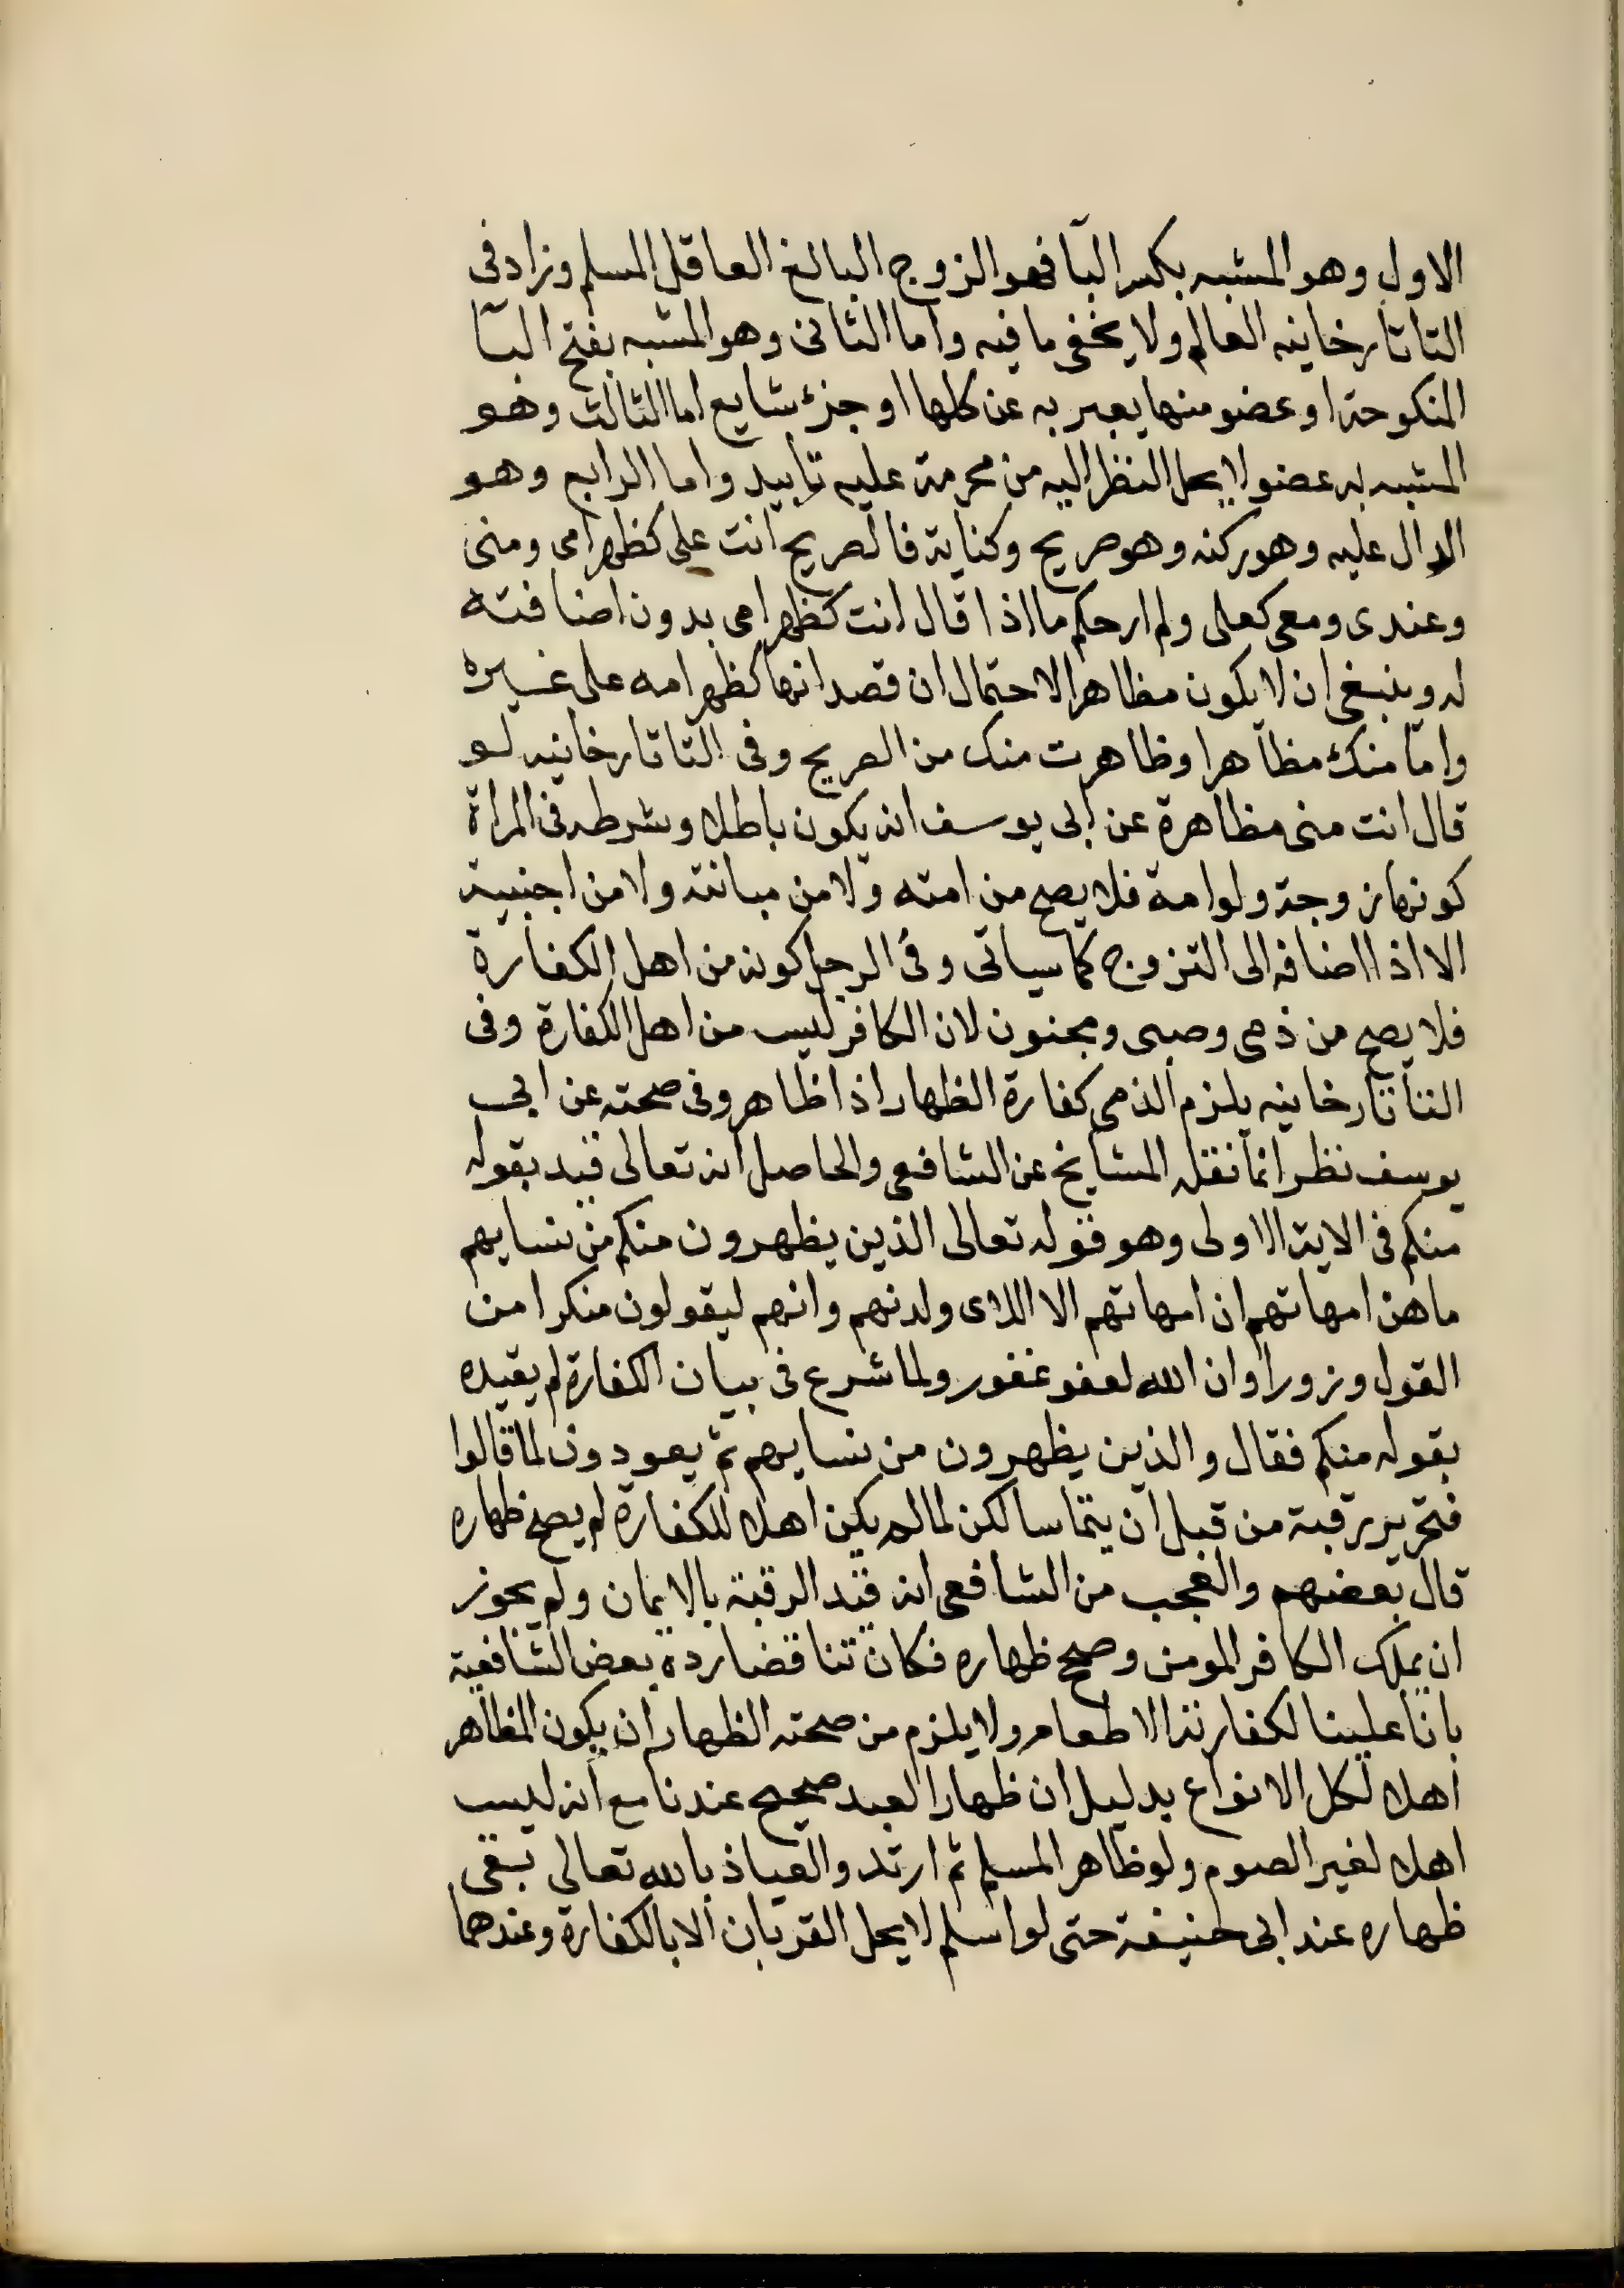 الاول وهو المشبه بكسر البآ فهو الزوج البالغ العاقل المسلم وزاد في
التاتارخانيه العالم ولا يخفى ما فيه واما الثاني وهو المشبه بفتح البآ
المنكوحة او عضو منها يعبر به عن كلها او جزء شايع اما الثالث وهو
المشبه به عضو لا يحل النظر اليه من محرمة عليه تابيد واما الرابع وهو
الدال عليه وهو ركنه وهو صريح وكناية فالصريح انت على كظهر امى ومنى
وعندى ومعى كعلى ولم ار حكم ما اذا قال انت كظهر امى بدون اضافته
له وينبغى ان لا يكون مظاهرا لاحتمال ان قصد انها كظهر امه على غيره
واما منك مظاهر او ظاهرت منك من الصريح وفى التاتارخانيه لو
قال انت منى مظاهرة عن ابى يوسف انه يكون باطلا وشرطه فى المراة
كونها زوجة ولو امة فلا يصح من امته ولا من مبانته ولا من اجنبية
الا اذا اضافه الى التزوج كما سياتى وفى الرجل كونه من اهل الكفارة
فلا يصح من ذمى وصبى ومجنون لان الكافر ليس من اهل الكفارة وفى
التاتارخانيه يلزم الذمى كفارة الظهار اذا ظاهر وفى صحته عن ابى
يوسف نظر انما نقله المشايخ عن الشافعى والحاصل انه تعالى قيد بقوله
منكم فى الاية الاولى وهو قوله تعالى الذين يظهرون منكم من نسايهم
ما هن امهاتهم ان امهاتهم الا اللاى ولدنهم وانهم ليقولون منكرا من
القول وزورا وان الله لعفو غفور ولما شرع فى بيان الكفارة لم يقيده
بقوله منكم فقال والذين يظهرون من نسايهم ثم يعودون لما قالوا
فتحرير رقبة من قبل ان يتماسا لكن لما لم يكن اهلا للكفارة لم يصح ظهاره
قال بعضهم والعجب من الشافعى انه قيد الرقبة بالايمان ولم يجوز
ان يملك الكافر المومن وصحح ظهاره فكان تناقضا رده بعض الشافعية
بانا علينا لكفارته الاطعام ولا يلزم من صحته الظهار ان يكون المظاهر
اهلا لكل الانواع بدليل ان ظهار العبد صحيح عندنا مع انه ليس
اهلا لغير الصوم ولو ظاهر المسلم ثم ارتد والعياذ بالله تعالى بقى
ظهاره عند ابى حنيفة حتى لو اسلم لا يحل القربان الا بالكفارة وعندهما